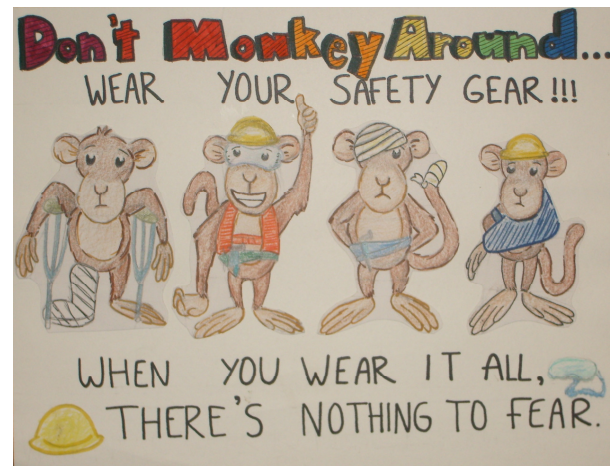 Don't Monkey Around...
WEAR YOUR SAFETY GEAR!!!
WHEN YOU WEAR IT ALL,
THERE'S NOTHING TO FEAR.